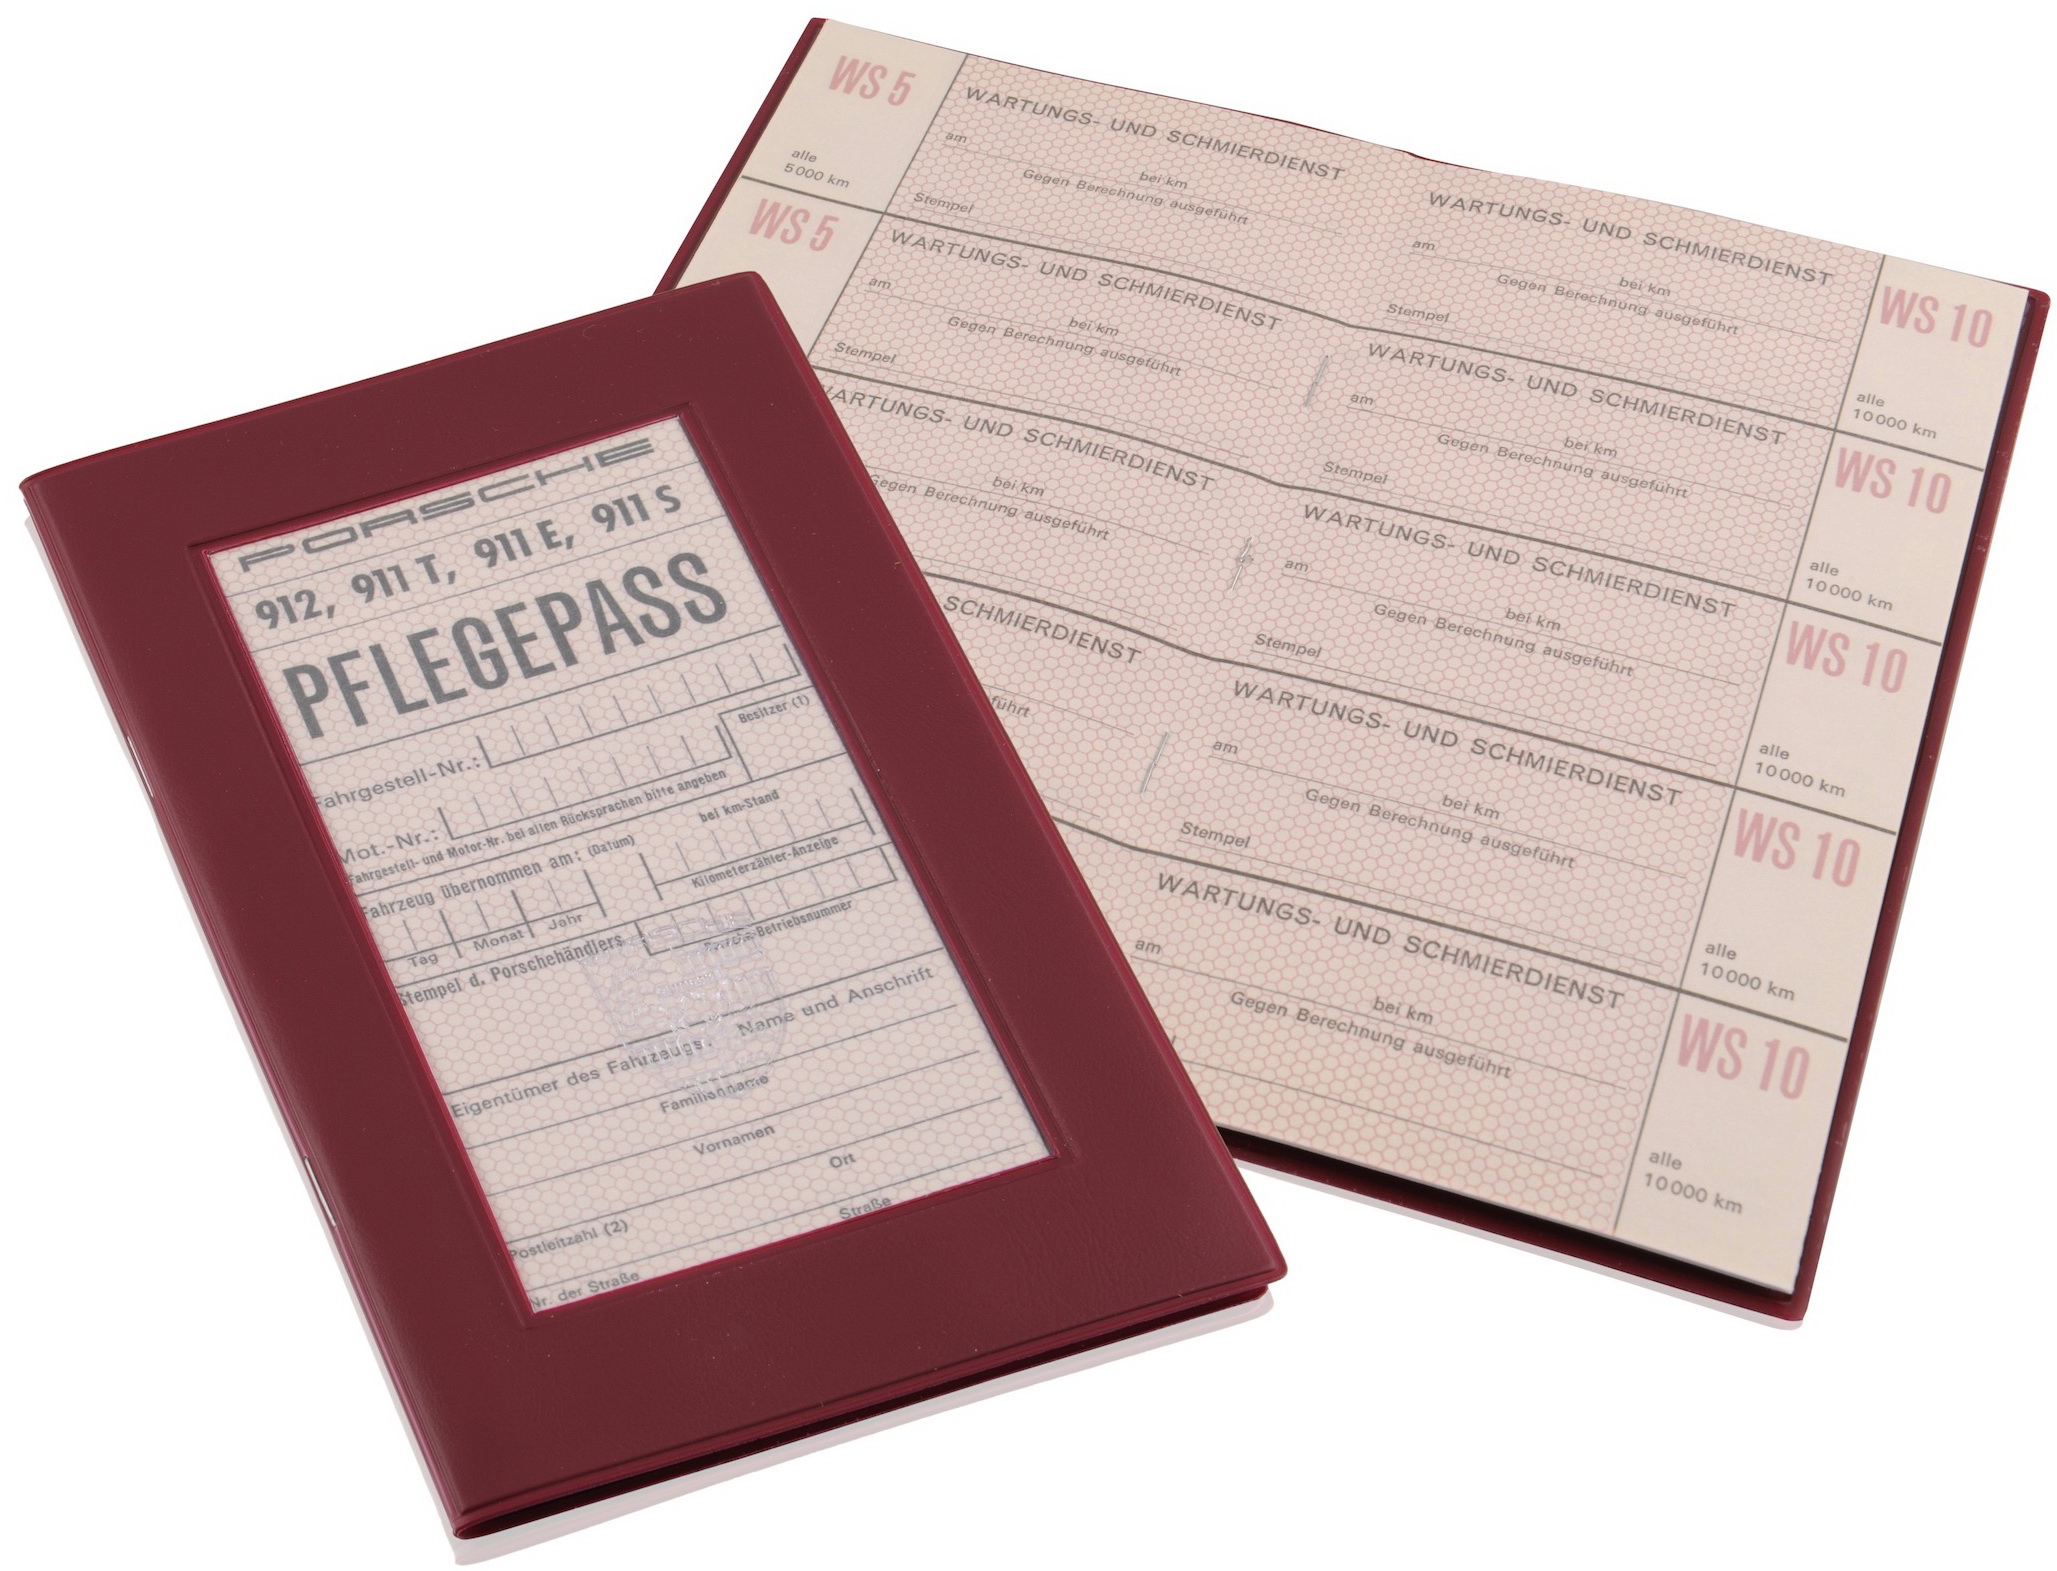 PORSCHE
912, 911 T, 911 E, 911 S
PFLEGEPASS
Fahrgestell-Nr.:
Besitzer (1)
Mot.-Nr.:
Fahrgestell- und Motor-Nr. bei allen Rücksprachen bitte angeben
Fahrzeug übernommen am: (Datum)
bei km-Stand
Tag Monat Jahr
Kilometerzähler-Anzeige
Stempel d. Porschehändlers
Betriebsnummer
Eigentümer des Fahrzeugs. Name und Anschrift
Familienname
Vornamen
Postleitzahl (2) Ort
Nr. der Straße Straße
WS 5
alle
5 000 km
WARTUNGS- UND SCHMIERDIENST
am
bei km
Gegen Berechnung ausgeführt
Stempel
WS 5
WARTUNGS- UND SCHMIERDIENST
am
bei km
Gegen Berechnung ausgeführt
Stempel
WARTUNGS- UND SCHMIERDIENST
bei km
Gegen Berechnung ausgeführt
SCHMIERDIENST
führt
WARTUNGS- UND SCHMIERDIENST
am
bei km
Gegen Berechnung ausgeführt
Stempel
WS 10
alle
10 000 km
WARTUNGS- UND SCHMIERDIENST
am
bei km
Gegen Berechnung ausgeführt
Stempel
WS 10
alle
10 000 km
WARTUNGS- UND SCHMIERDIENST
am
bei km
Gegen Berechnung ausgeführt
Stempel
WS 10
alle
10 000 km
WARTUNGS- UND SCHMIERDIENST
am
bei km
Gegen Berechnung ausgeführt
Stempel
WS 10
alle
10 000 km
WARTUNGS- UND SCHMIERDIENST
am
bei km
Gegen Berechnung ausgeführt
WS 10
alle
10 000 km